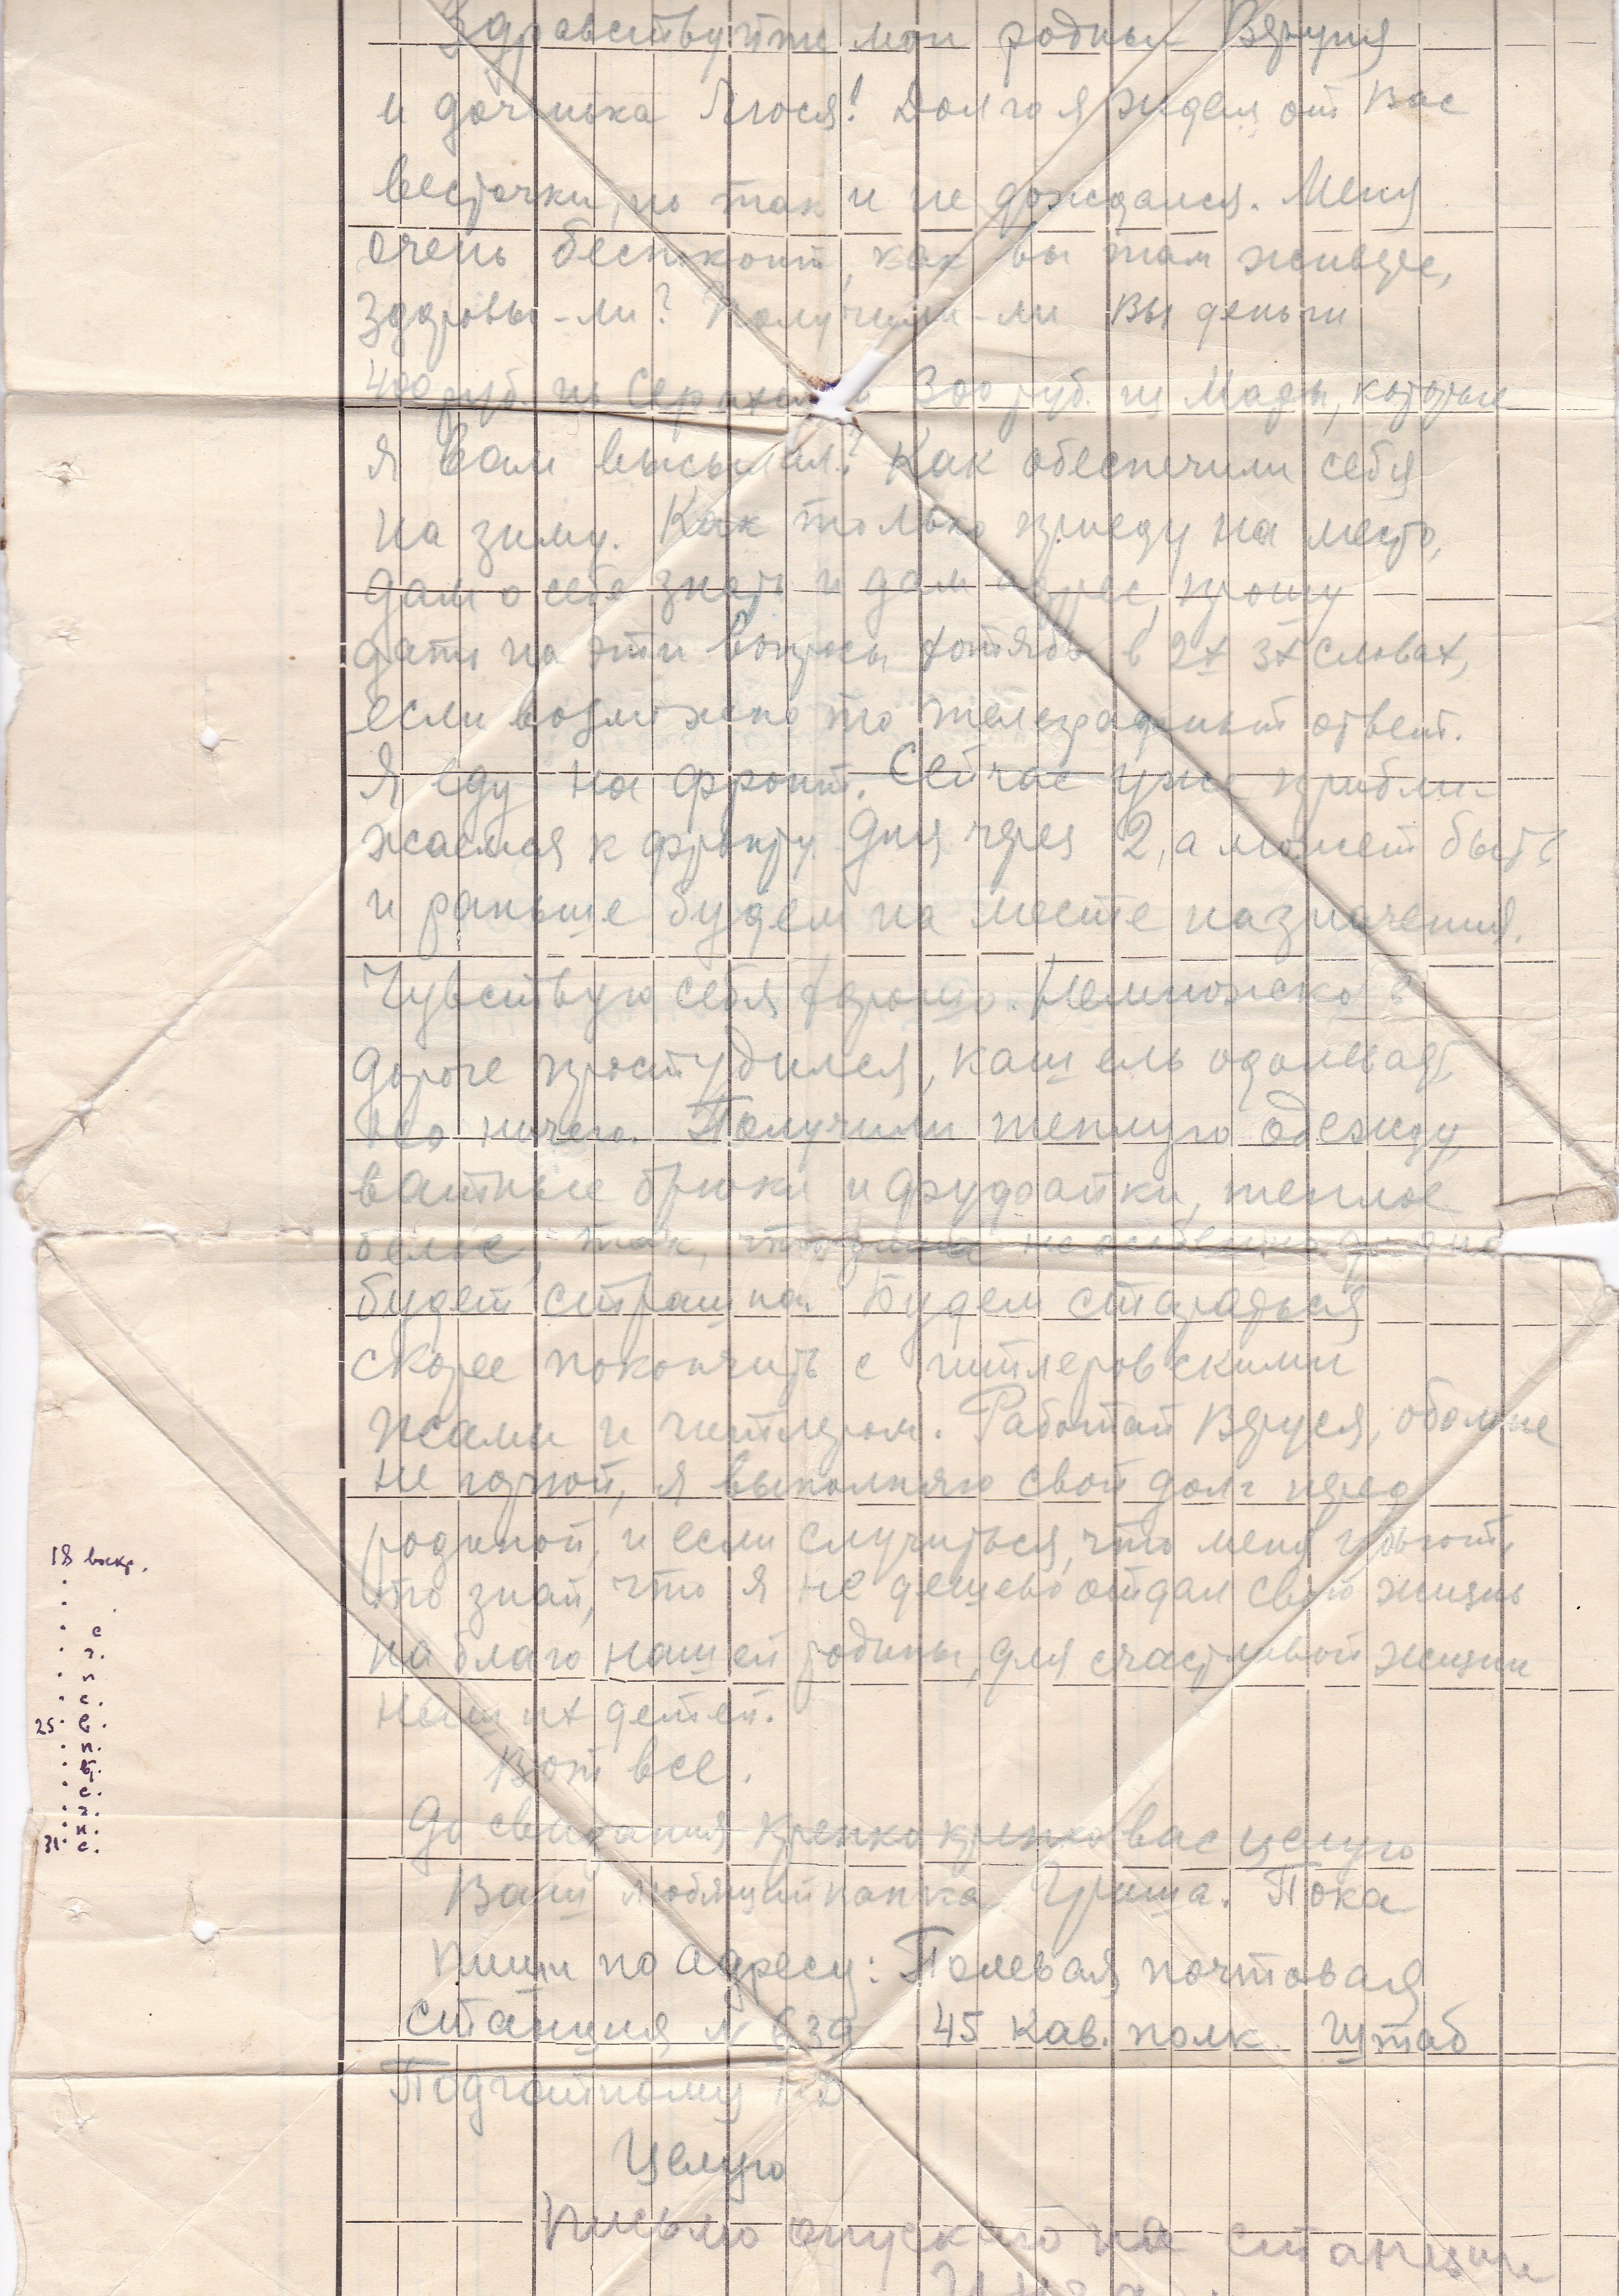 Здравствуйте мои родные Веруня
и доченька Люся! Долго я ждал от Вас
весточки, но так и не дождался. Меня
очень беспокоит, как вы там живете,
здоровы-ли? Получили-ли Вы деньги
400 руб. из 300 руб. из Мары, которые
я Вам высылал? Как обеспечили себя
на зиму. Как только приеду на место,
дам о себе знать и дам адрес, прошу
дать на эти вопросы хотябы в 2х 3х словах,
если возможно то телеграфный ответ.
Я еду на фронт. Сейчас уже прибли-
жаемся к фронту. Дня через 2, а может быть
и раньше будем на месте назначения.
Чувствую себя хорошо. Немножко в
дороге простудился, кашель одолевает,
но ничего. Получили теплую одежду,
ватные брюки и фуфайки, теплое
белье, так, что зима не особенно
будет страшна. Будем стараться
скорее покончить с гитлеровскими
псами и гитлером. Работай Веруся, обо мне
не горюй, я выполняю свой долг перед
родиной, и если случиться, что меня убьют,
то знай, что я не дешево отдал свою жизнь
на благо нашей родины, для счастливой жизни
наших детей.
Вот все.
До свидания крепко крепко вас целую
Ваш любящий папка Гриша. Пока
пиши по адресу: Полевая почтовая
станция N 639 45 кав. полк. Штаб
Подгайному
Целую
Письмо опускаю на станции
18 воскр.
с
ч.
п
с.
25. в.
п.
вт.
с.
ч.
п.
31. с.